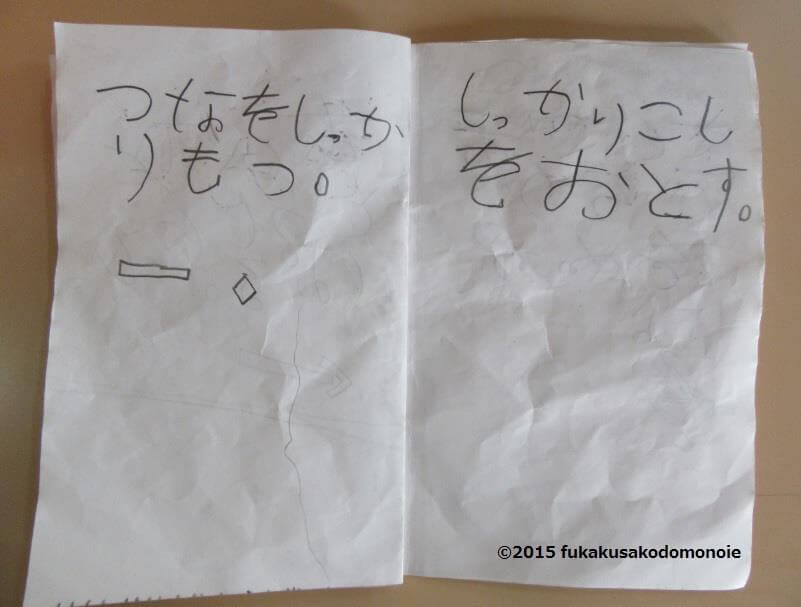 つなをしっか
りもつ。
しっかりこし
をおとす。
©2015 fukakusakodomonoie